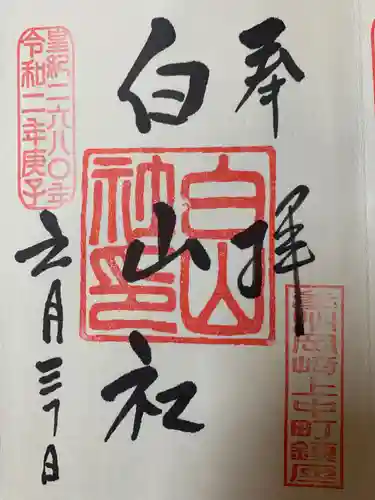 奉拝
岡崎上中町鎮座
白山社
白山
社印
皇紀二六八〇年
令和二年庚子
六月三十日